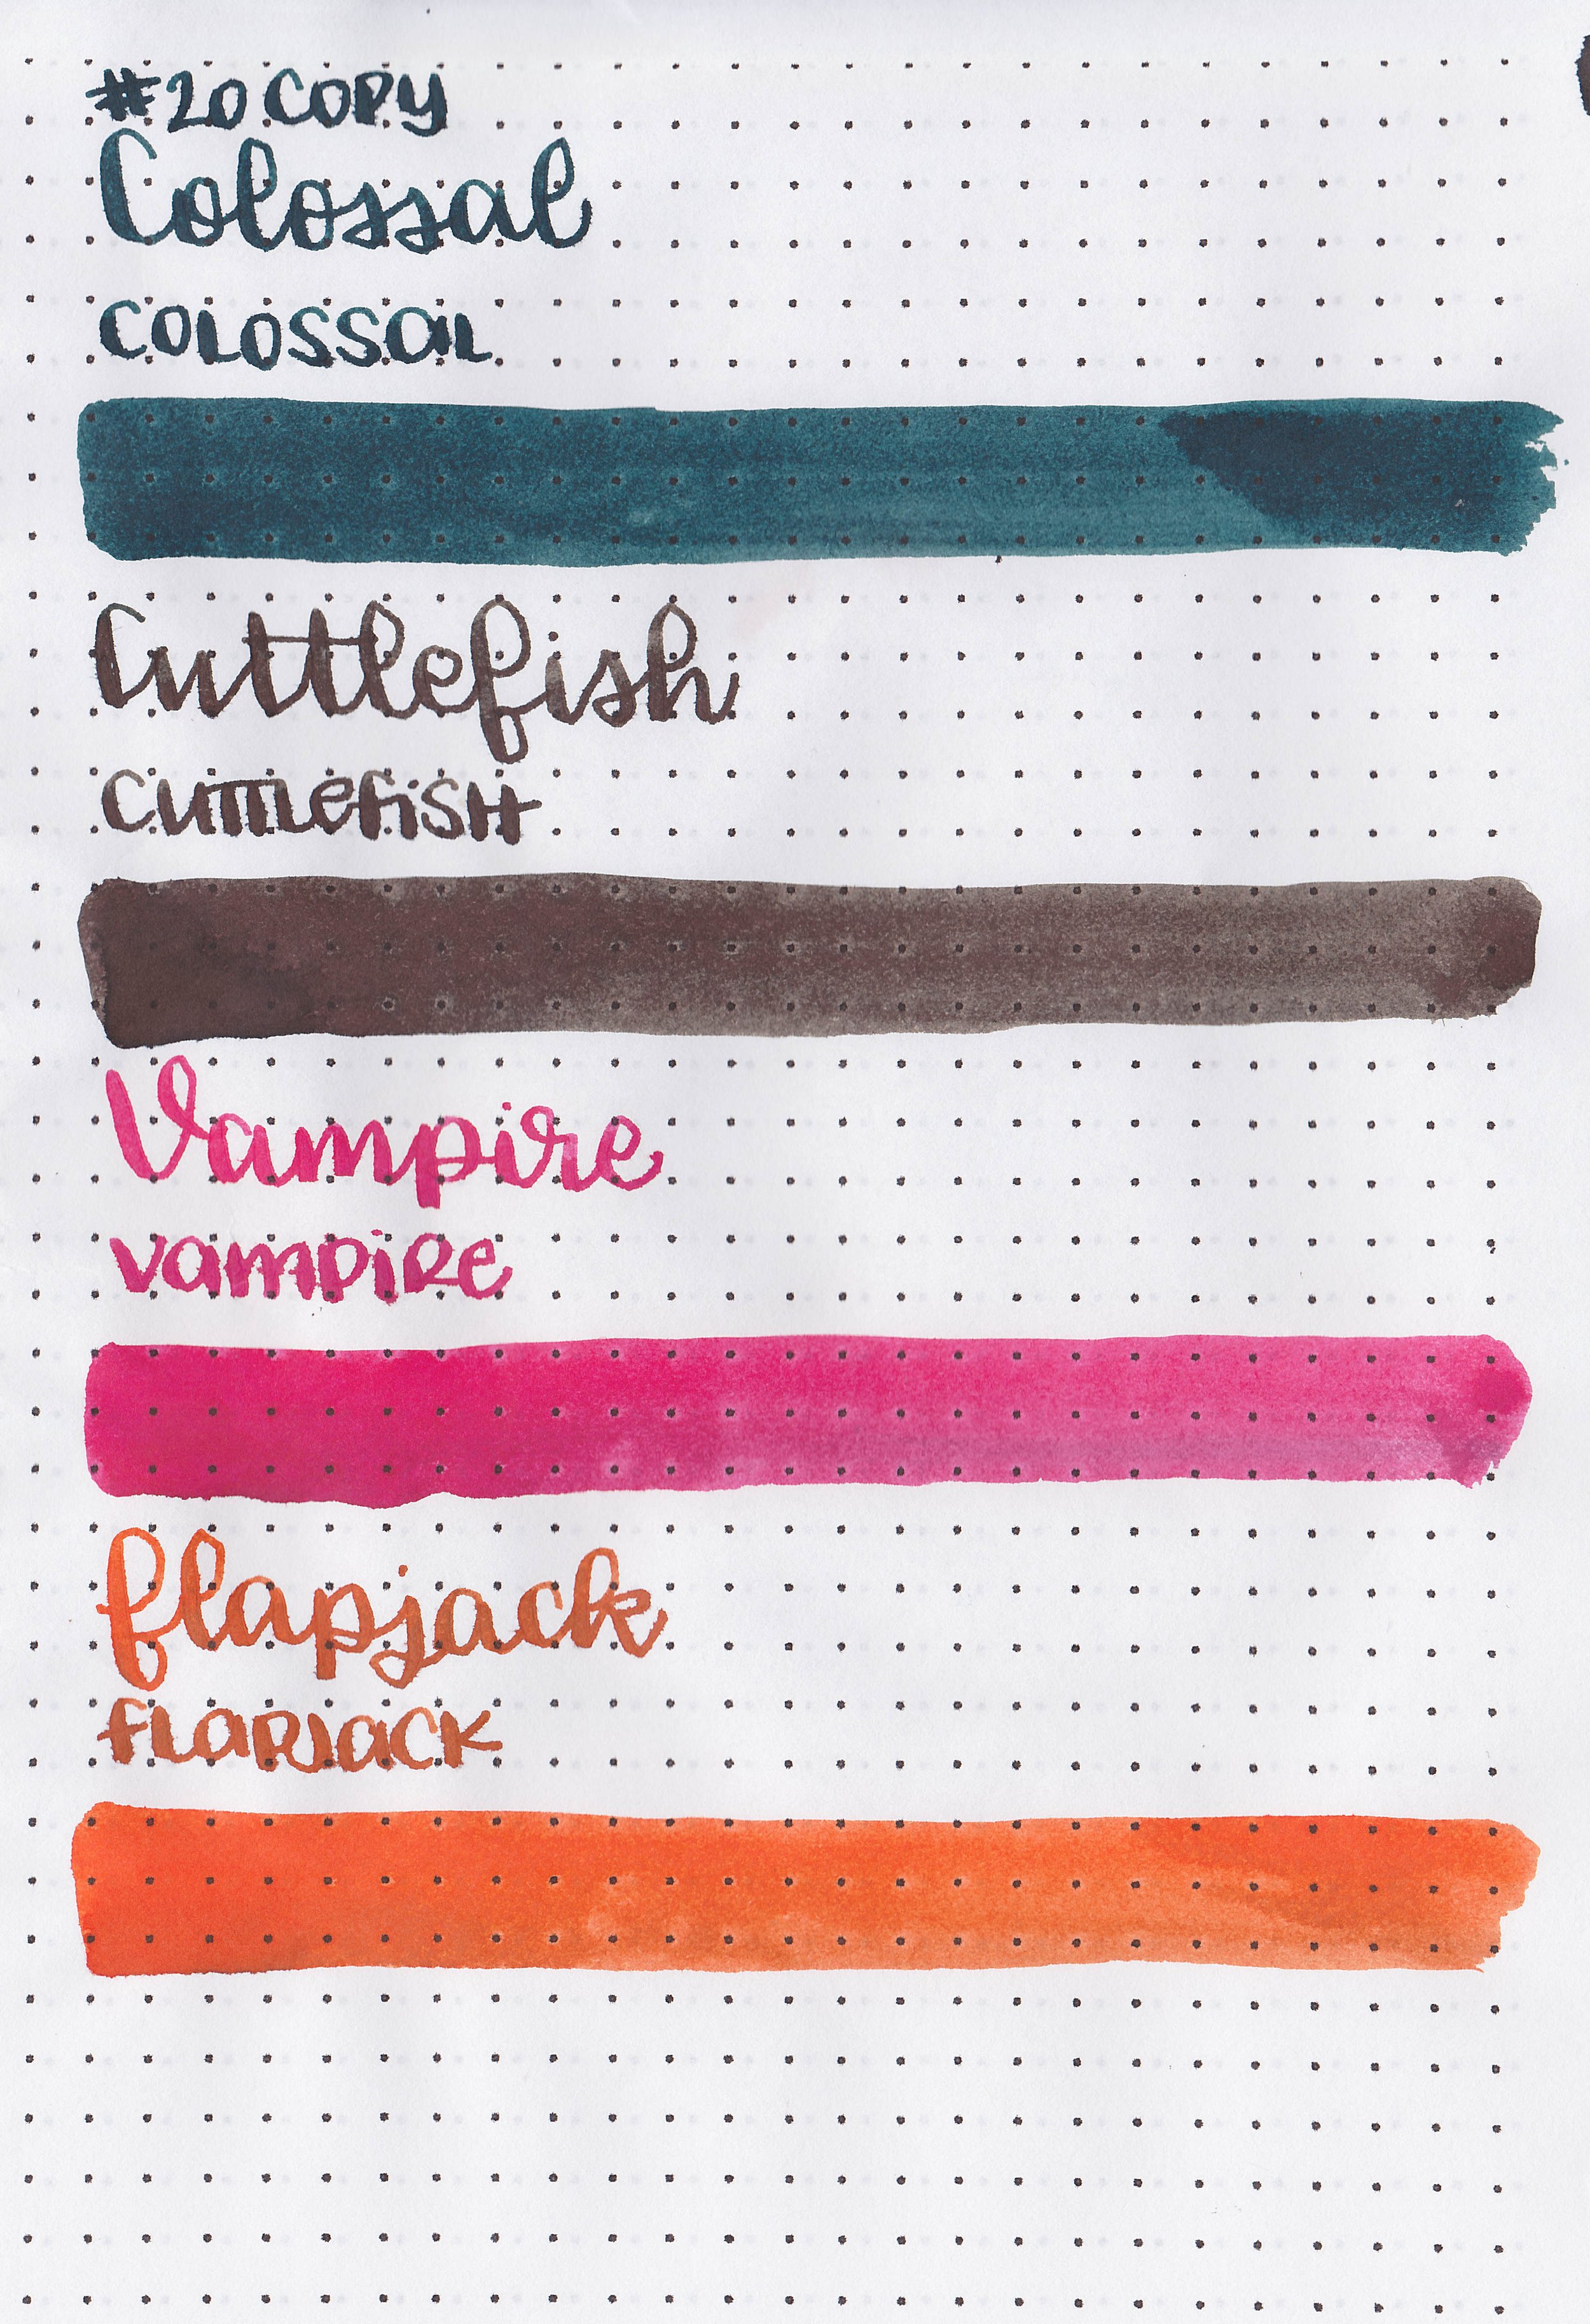 #20 COPY
Colossal
COLOSSAL
Cuttlefish
CUTTLEFISH
Vampire
vampire
flapjack
flapjack